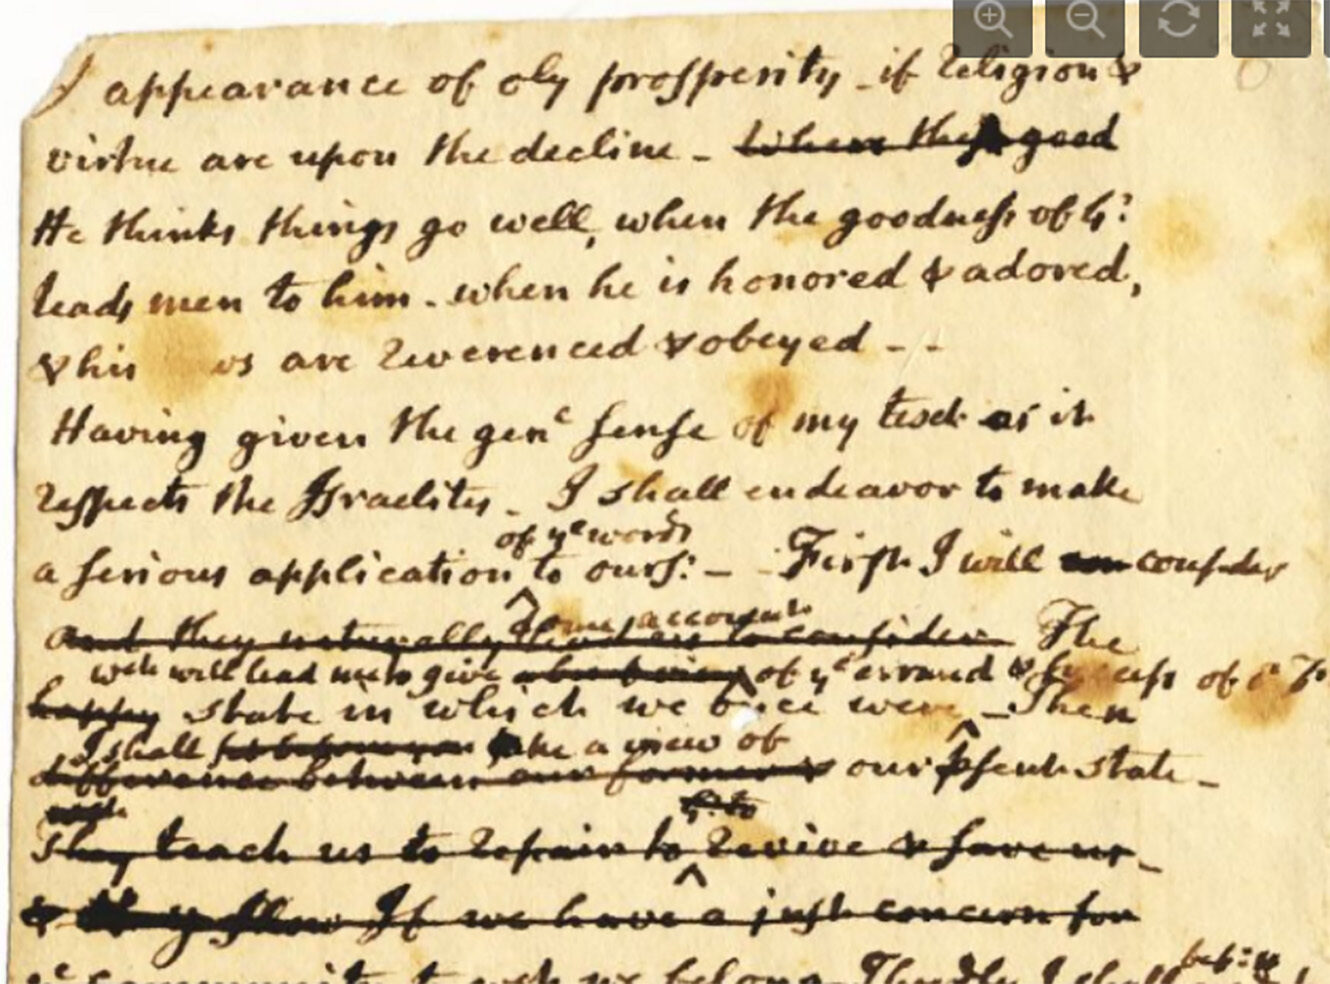 appearance of oly prosperity - if Religion &
virtue are upon the decline - When they good
He thinks things go well, when the goodness of G:
leads men to him - when he is honored & adored,
& his are Reverenced & obeyed - -
Having given the genˡ sense of my text as it
respects the Israelites - I shall endeavor to make
of yᵉ words
a serious application to ours: - First I will con consider
some account
and they naturally lead us to consider The
wch will lead me to give of yᵉ errand & of
happy state in which we once were - Then
I shall take a view of
difference between our former & our psent state -
They teach us to Repair to Revive & save us -
& If we have a just concern for
community to wch we belong - Thirdly I shall